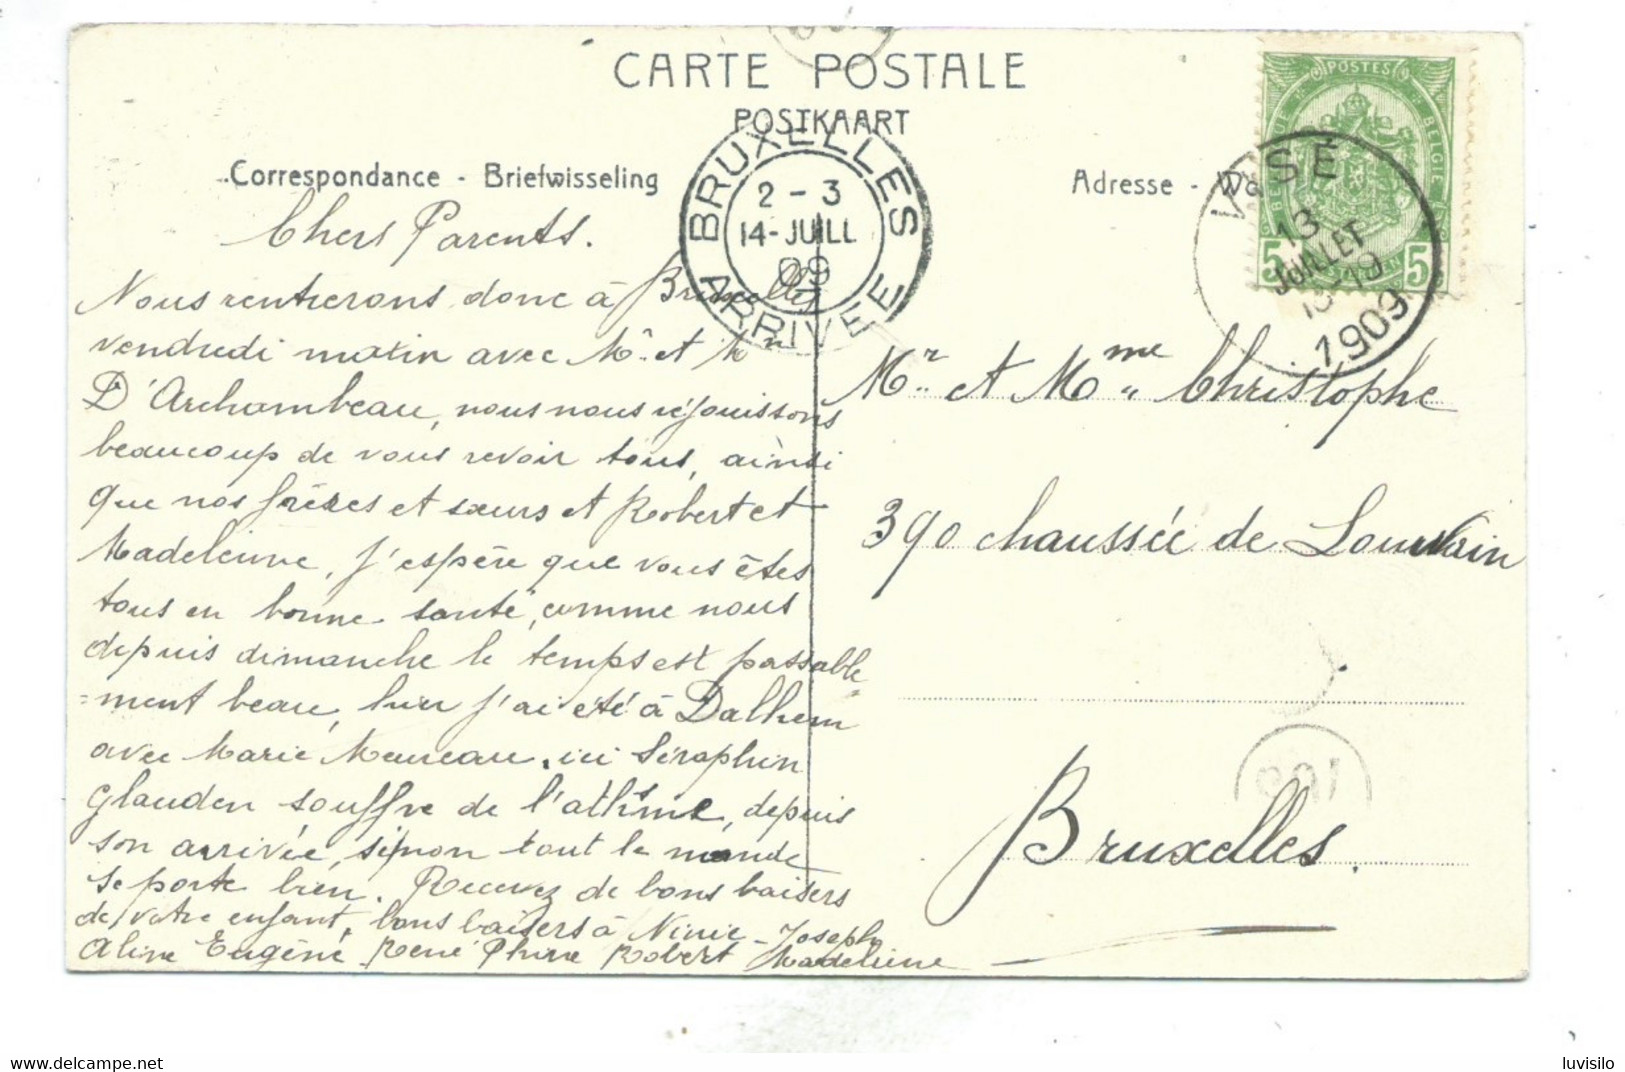 CARTE POSTALE
POSTKAART
Correspondance - Briefwisseling
Adresse -
BRUXELLES
2 - 3
14-JUILL
09
ARRIVEE
POSTES
5 5
VISÉ
13
JUILLET
1909
Chers Parents.
Nous rentrerons donc à Bruxelles
vendredi matin avec Mr et Mm
D'Archambeau, nous nous réjouissons
beaucoup de vous revoir tous, ainsi
que nos frères et sœurs et Robert et
Madeleine, j'espère que vous êtes
tous en bonne santé, comme nous
depuis dimanche le temps est passable
=ment beau, hier j'ai été à Dalhem
avec Marie Meureau, ici Séraphin
Glauden souffre de l'athsme, depuis
son arrivée, sinon tout le monde
se porte bien. Recevez de bons baisers
de votre enfant, bons baisers à Ninie - Joseph
Aline Eugène René Phine Robert Madeleine
Mr et Mme Christophe
390 chaussée de Louvain
Bruxelles.
luvisilo